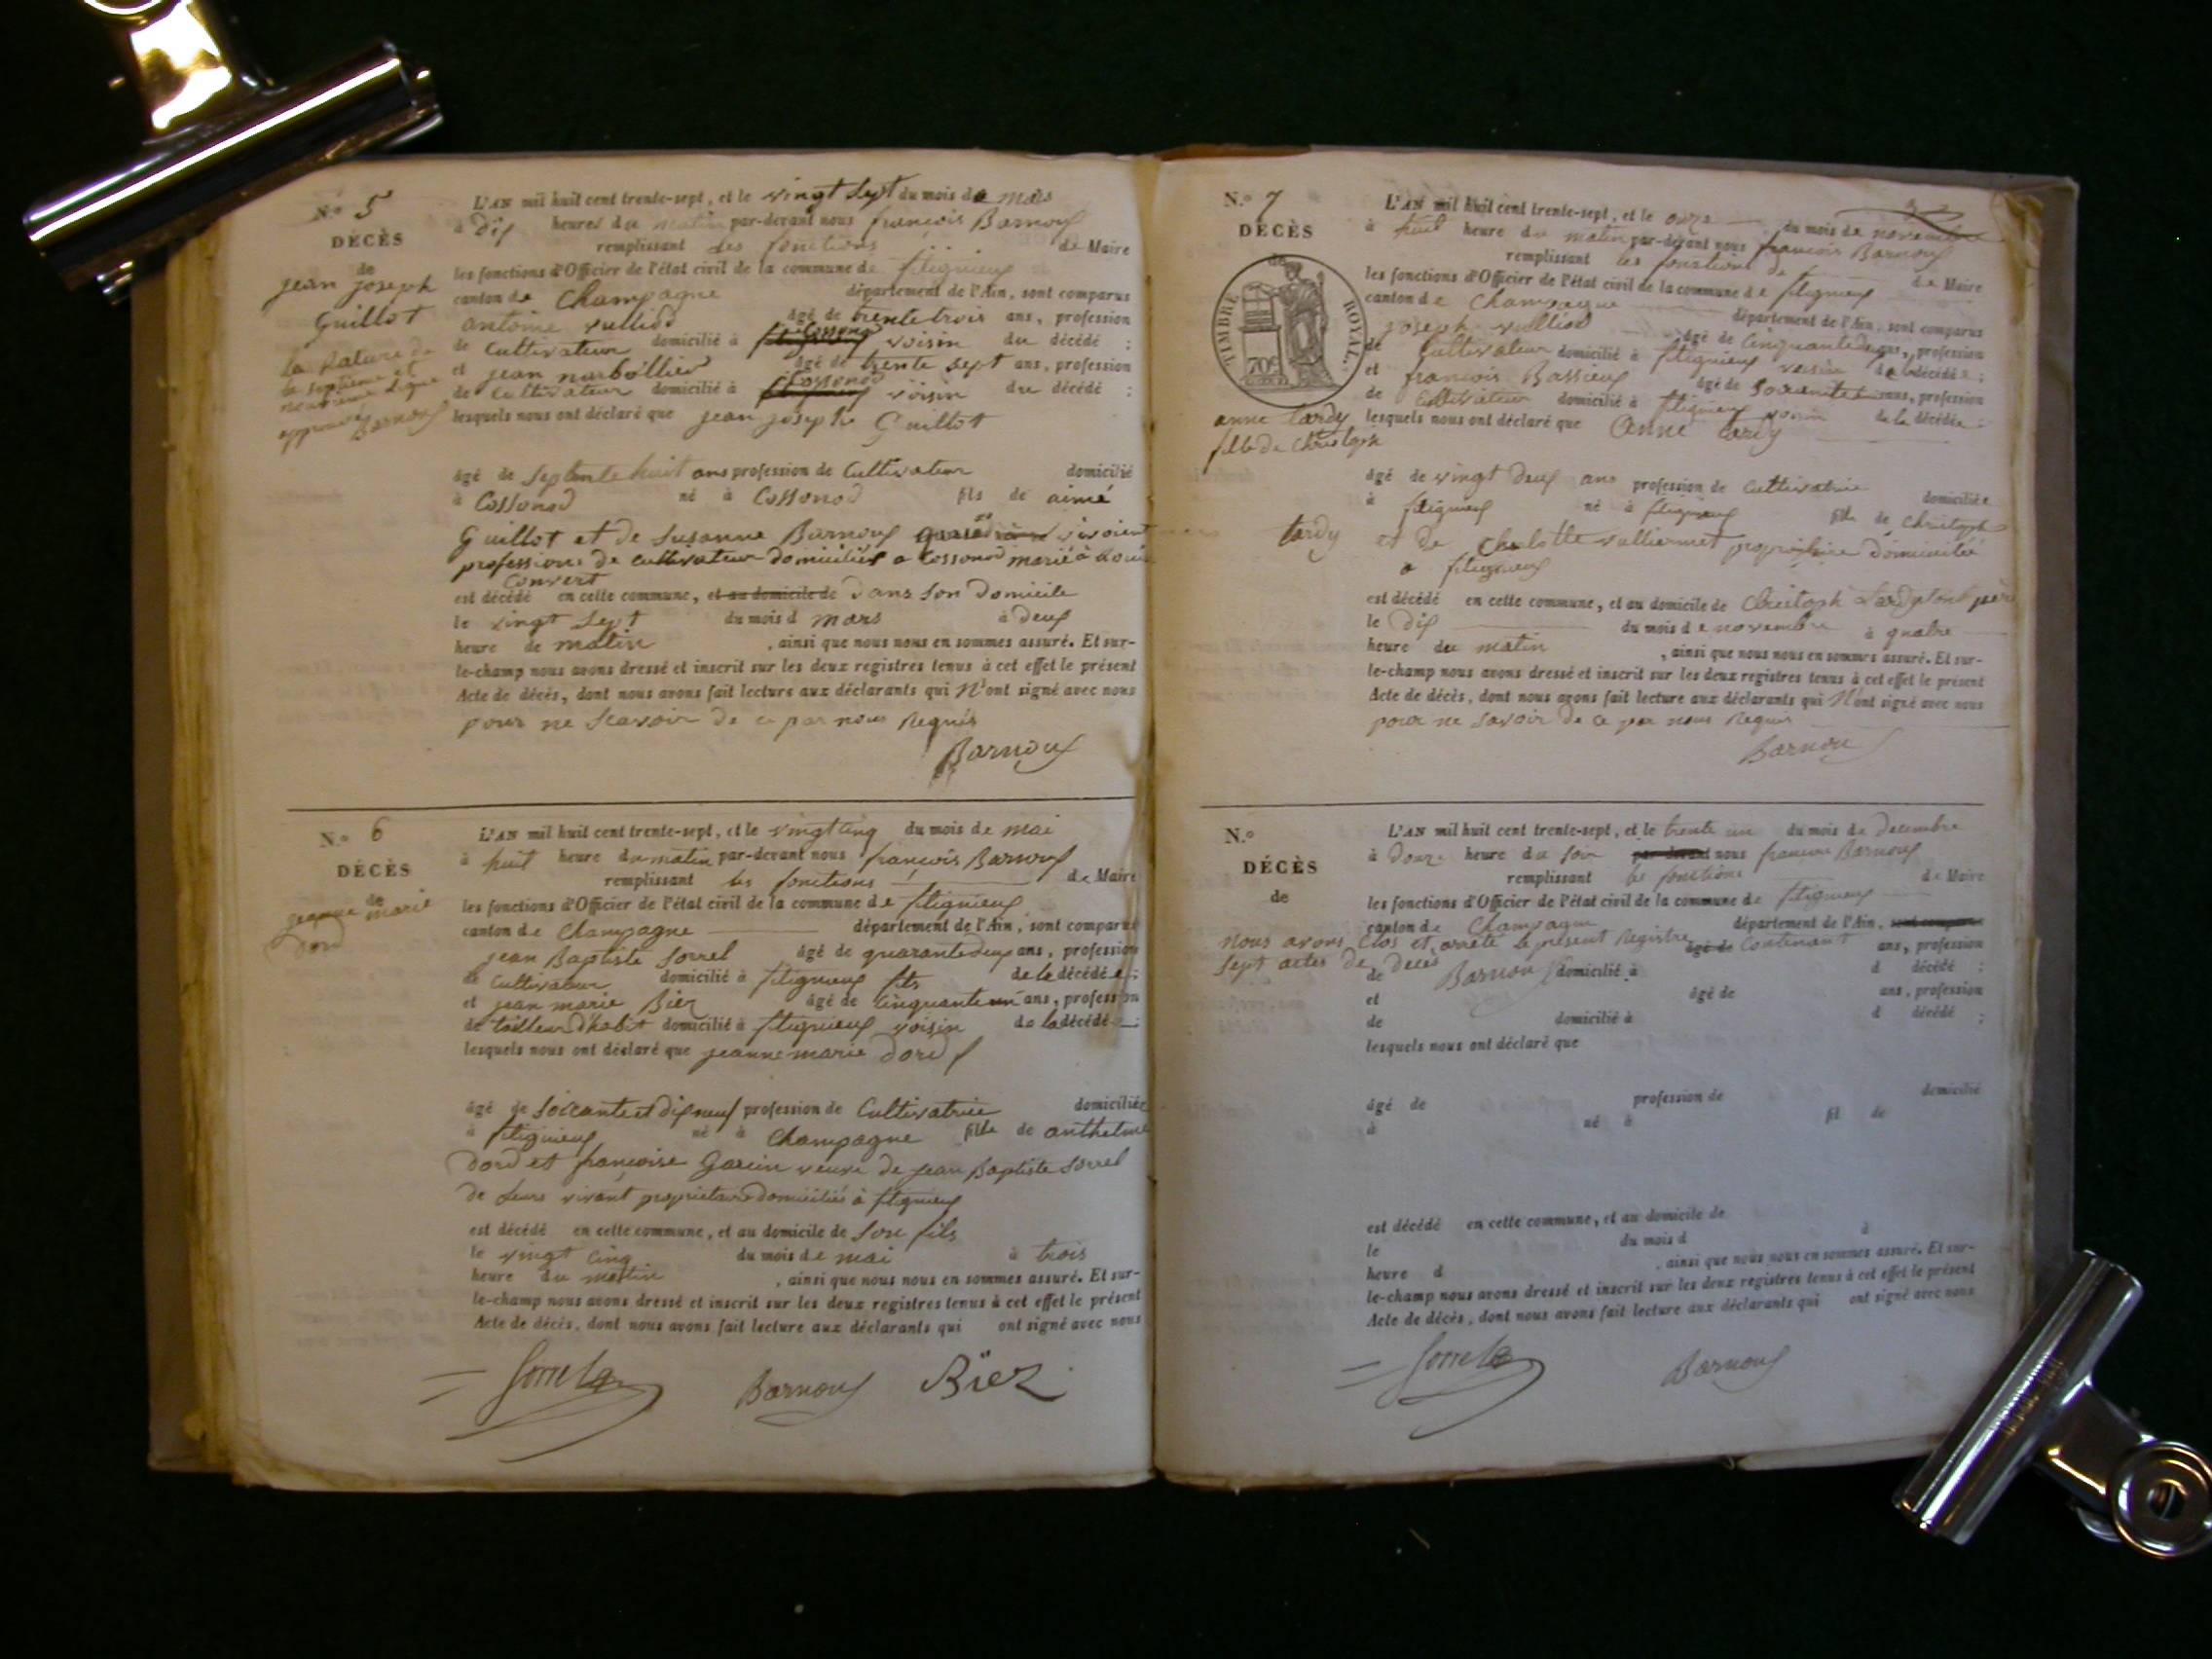 N.° 5
DÉCÈS
de
jean joseph
Guillot
la Rature de
la septieme et
neuvieme ligne
approuvée
Barnoux
L'AN mil huit cent trente-sept, et le vingt Sept du mois de mars
à dix heures du matin par-devant nous françois Barnoux
remplissant les fonctions de Maire
les fonctions d'Officier de l'état civil de la commune de fitignieux
canton de Champagne département de l'Ain, sont comparus
antoine vulliod âgé de trente trois ans, profession
de Cultivateur domicilié à Cossonod voisin du décédé ;
et jean narbollier âgé de trente sept ans, profession
de Cultivateur domicilié à Cossonod voisin du décédé ;
lesquels nous ont déclaré que jean joseph Guillot
âgé de septente huit ans profession de Cultivateur domicilié
à Cossonod né à Cossonod fils de aimé
Guillot et de Susanne Barnoux vivoient
professions de cultivateur domiciliés a Cossonod marié à
Convert
est décédé en cette commune, et au domicile de dans son domicile
le vingt Sept du mois d mars à deux
heure de matin , ainsi que nous nous en sommes assuré. Et sur-
le-champ nous avons dressé et inscrit sur les deux registres tenus à cet effet le présent
Acte de décès, dont nous avons fait lecture aux déclarants qui N'ont signé avec nous
pour ne scavoir de ce par nous Requis
Barnoux
N.° 6
DÉCÈS
de
jeanne marie
dord
L'AN mil huit cent trente-sept, et le vingt cinq du mois de mai
à huit heure du matin par-devant nous françois Barnoux
remplissant les fonctions de Maire
les fonctions d'Officier de l'état civil de la commune de fitignieux
canton de Champagne département de l'Ain, sont comparus
jean Baptiste Sorrel âgé de quarante deux ans, profession
de Cultivateur domicilié à fitignieux fils de la décédée ;
et jean marie Biez âgé de Cinquante un ans, profession
de tailleur d'habit domicilié à fitignieux voisin de la décédée ;
lesquels nous ont déclaré que jeanne marie dord
âgé de soixante et dix neuf profession de Cultivatrice domiciliée
à fitignieux né à Champagne fille de anthelme
dord et françoise Garin veuve de jean Baptiste Sorrel
de Leurs vivant propriétaires domiciliés à fitignieux
est décédé en cette commune, et au domicile de son fils
le vingt cinq du mois de mai à trois
heure du matin , ainsi que nous nous en sommes assuré. Et sur-
le-champ nous avons dressé et inscrit sur les deux registres tenus à cet effet le présent
Acte de décès, dont nous avons fait lecture aux déclarants qui ont signé avec nous
Sorrel Barnoux Biez
N.° 7
DÉCÈS
de
TIMBRE ROYAL.
70c
anne tardy
fille de Christoph
L'AN mil huit cent trente-sept, et le onze du mois de novembre
à huit heure du matin par-devant nous françois Barnoux
remplissant les fonctions de de Maire
les fonctions d'Officier de l'état civil de la commune de fitignieux
canton de Champagne département de l'Ain, sont comparus
joseph vulliod âgé de Cinquante deux ans, profession
de Cultivateur domicilié à fitignieux voisin de la décédée ;
et françois Bassieux âgé de Soixante ans, profession
de Cultivateur domicilié à fitignieux voisin de la décédée ;
lesquels nous ont déclaré que Anne tardy
âgé de vingt deux ans profession de Cultivatrice domiciliée
à fitignieux né à fitignieux fille de Christoph
tardy et de Charlotte vulliermet propriétaire domicilié
a fitignieux
est décédé en cette commune, et au domicile de Christoph tardy son père
le dix du mois de novembre à quatre
heure du matin , ainsi que nous nous en sommes assuré. Et sur-
le-champ nous avons dressé et inscrit sur les deux registres tenus à cet effet le présent
Acte de décès, dont nous avons fait lecture aux déclarants qui N'ont signé avec nous
pour ne savoir de ce par nous Requis
Barnoux
N.°
DÉCÈS
de
L'AN mil huit cent trente-sept, et le trente un du mois de decembre
à douze heure du soir par-devant nous françois Barnoux
remplissant les fonctions de Maire
les fonctions d'Officier de l'état civil de la commune de fitignieux
canton de Champagne département de l'Ain, sont comparus
nous avons Clos et arrêté le présent Registre âgé de Contenant ans, profession
Sept actes de décès
de Barnoux domicilié à d décédé ;
et âgé de ans, profession
de domicilié à d décédé ;
lesquels nous ont déclaré que
âgé de profession de domicilié
à né à fil de
est décédé en cette commune, et au domicile de
le du mois d à
heure d , ainsi que nous nous en sommes assuré. Et sur-
le-champ nous avons dressé et inscrit sur les deux registres tenus à cet effet le présent
Acte de décès, dont nous avons fait lecture aux déclarants qui ont signé avec nous
Sorrel Barnoux